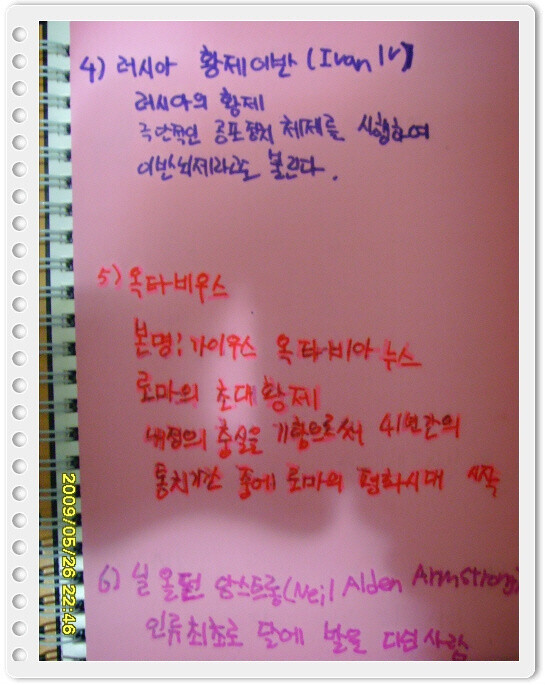 4) 러시아 황제이반 (Ivan IV)
러시아의 황제
극단적인 공포정치 체제를 시행하여
이반뇌제라고도 불린다.
5) 옥타비우스
본명: 가이우스 옥타비아누스
로마의 초대황제
내정의 충실을 기함으로써 41년간의
통치기간 중에 로마의 평화시대 시작
6) 닐 올던 암스트롱 (Neil Alden Armstrong)
인류최초로 달에 발을 디딘사람
2009/05/26 22:46